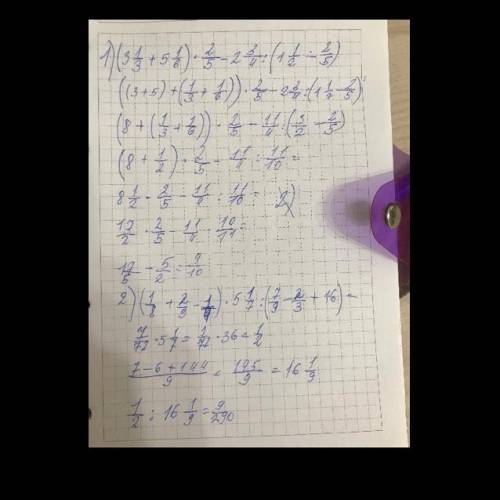 1) (3 1/3 + 5 1/6) · 2/5 - 2 3/4 : (1 1/2 - 2/5)
((3+5) + (1/3 + 1/6)) · 2/5 - 2 3/4 : (1 1/2 - 2/5)
(8 + (1/3 + 1/6)) · 2/5 - 11/4 : (3/2 - 2/5)
(8 + 1/2) · 2/5 - 11/4 : 11/10 =
8 1/2 · 2/5 - 11/4 : 11/10 =
17/2 · 2/5 - 11/4 · 10/11 =
17/5 - 5/2 = 9/10
2) (1/8 + 2/3 - 1/9) · 5 1/7 : (7/9 - 2/3 + 16) =
7/72 · 5 1/7 = 1/72 · 36 = 1/2
7-6+144/9 = 145/9 = 16 1/9
1/2 : 16 1/9 = 9/290